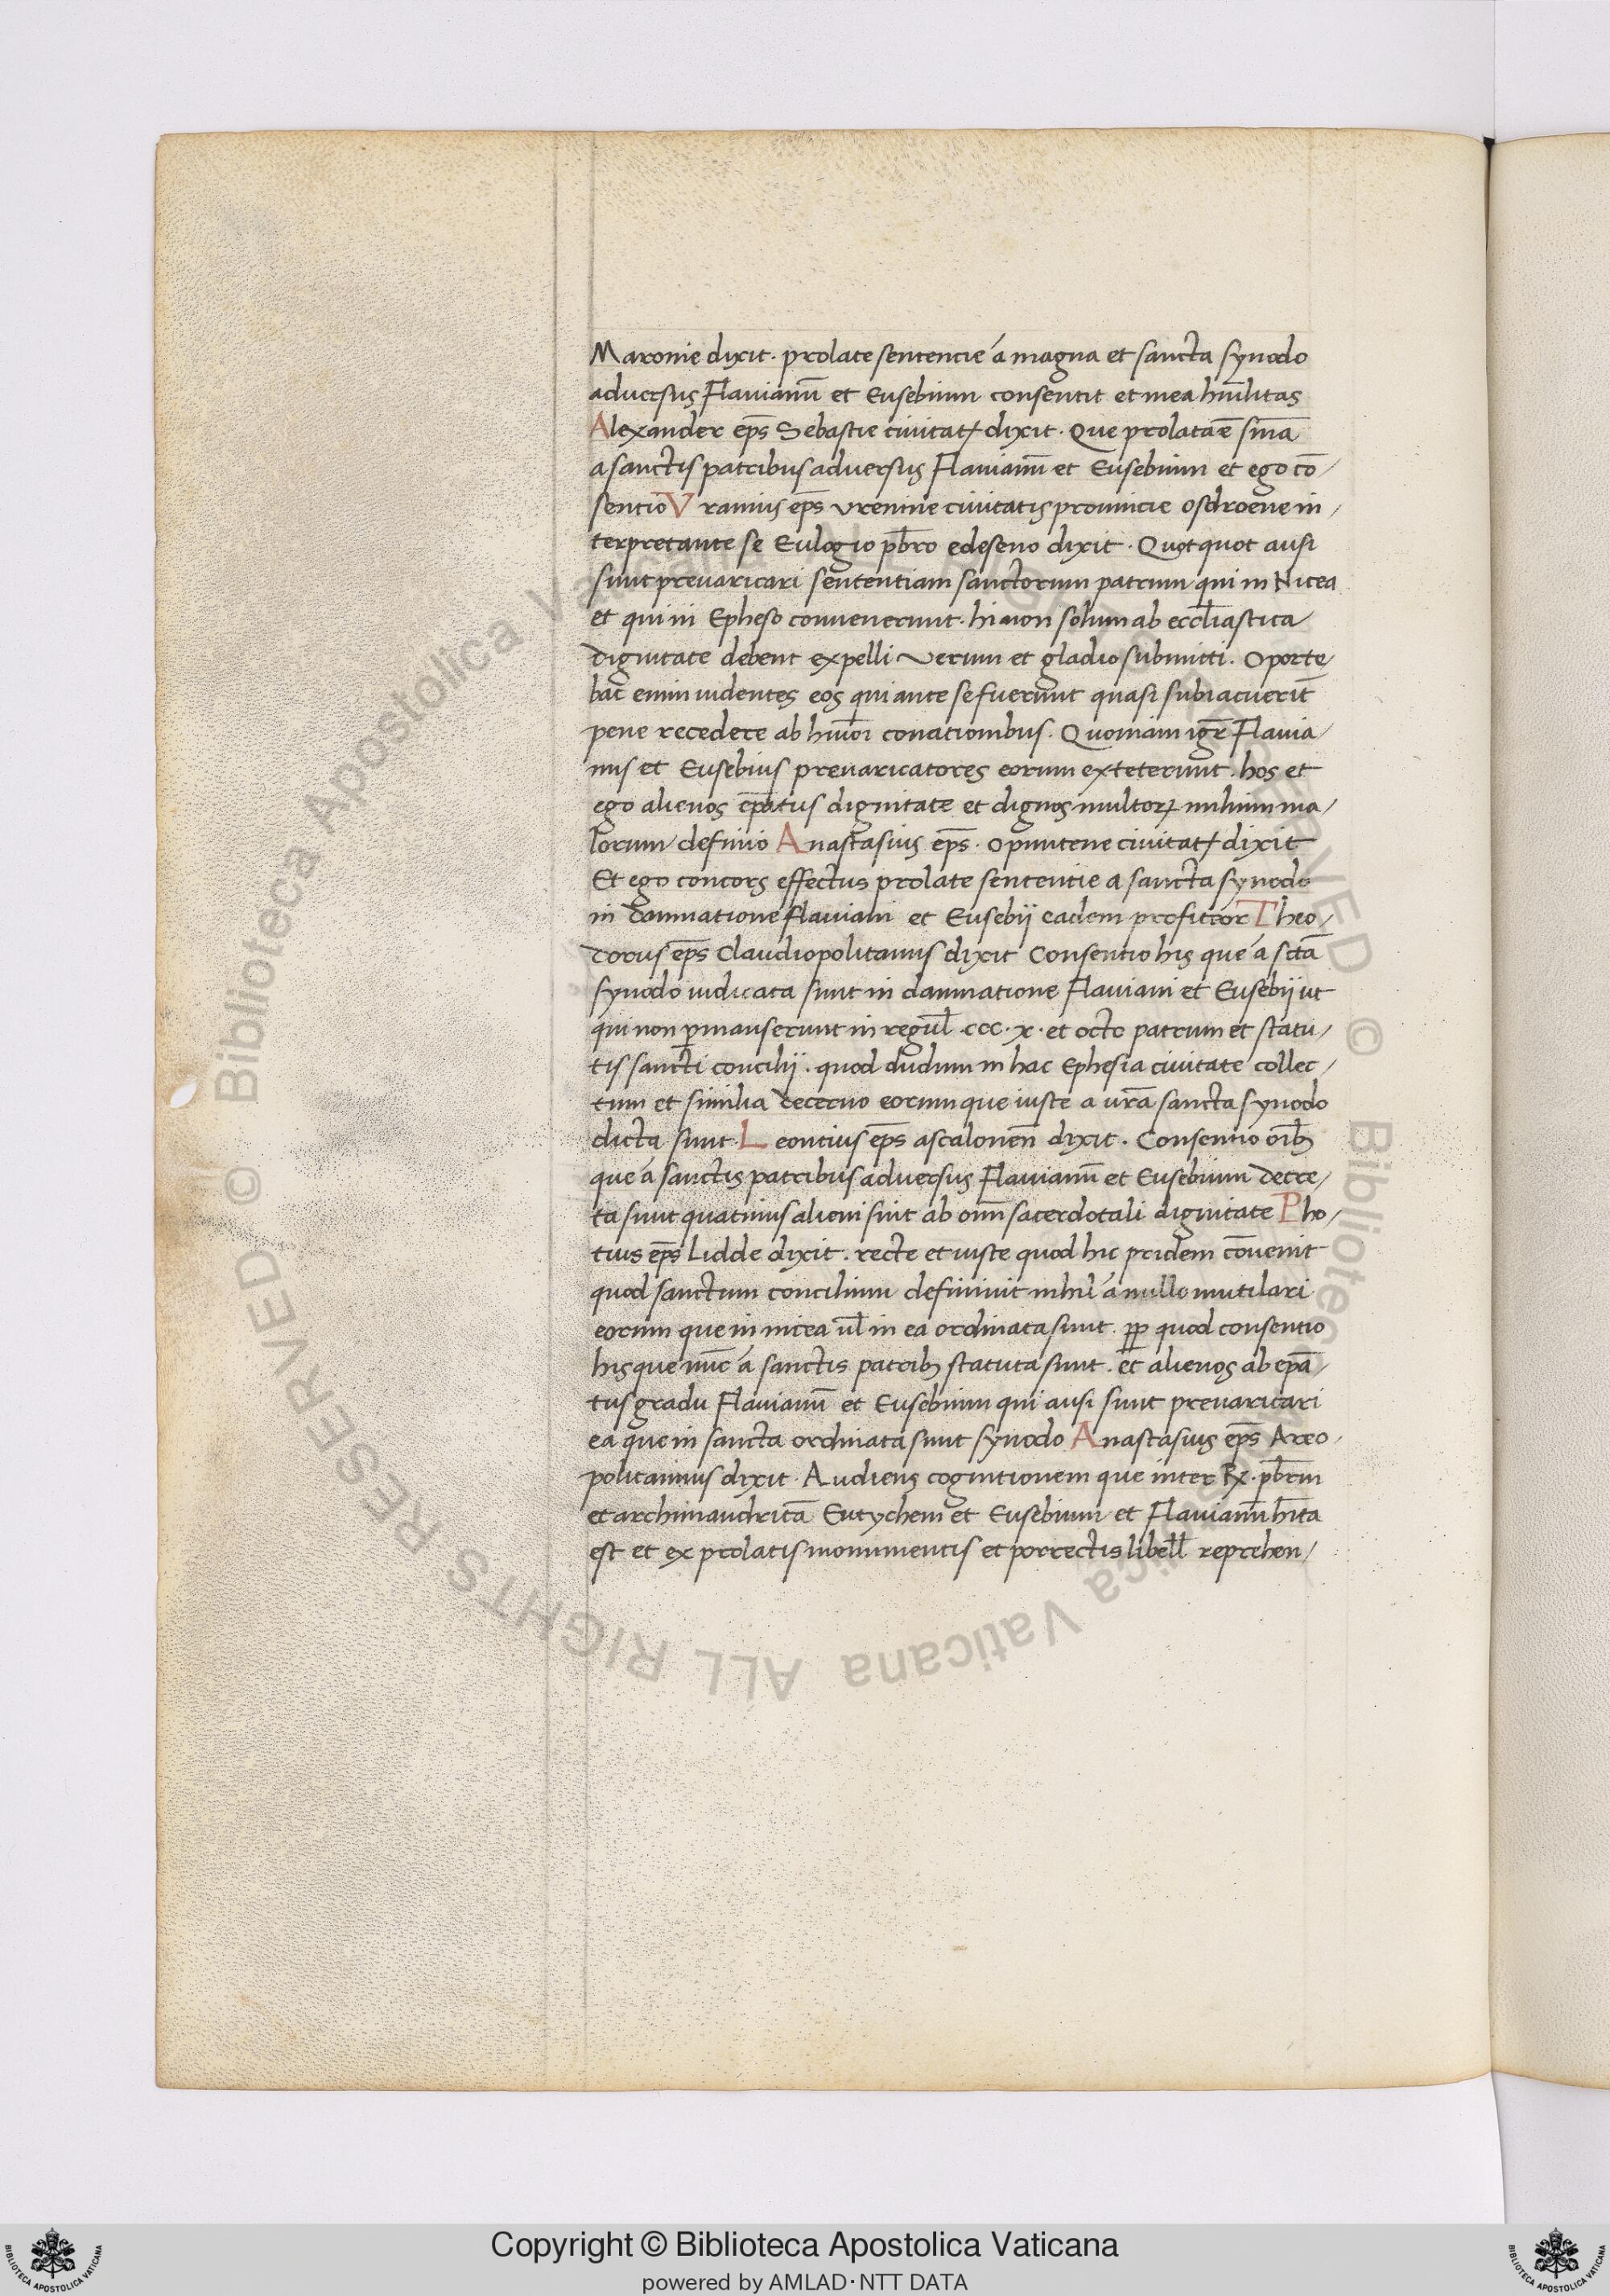 Maronie dixit. prolate sentencie á magna et sancta synodo
adversus Flavianū et Eusebium consentit et mea hūilitas
Alexander ep̄s Sebastie civitatꝭ dixit. Que prolata ē sn̄ia
a sanctis patribus adversus Flavianū et Eusebium et ego cō/
sentio Vranius ep̄s vrenine civitatis provincie osdroene in/
terpretante se Eulogio pb̄ro edeseno dixit. Quotquot ausi
sunt prevaricari sententiam sanctorum patrum qui in Nicea
et qui in Epheso convenerunt. hi non solum ab eccl̄iastica
dignitate debent expelli verum et gladio submitti. Oporte
bat enim videntes eos qui ante se fuerunt quasi subiacuerīt
pene recedere ab hiuōi conationibus. Quoniam igr̄ Flavia/
nus et Eusebius prevaricatores eorum exteterunt. hos et
ego alienos ep̄atus dignitate et dignos multoꝝ nihium ma/
lorum definio Anastasius ep̄s. opuntene civitatꝭ dixit
Et ego concors effectus prolate sententie a sancta synodo
in damnatione flaviani et Eusebij eadem profiteor Theo/
dorus ep̄s Claudiopolitanus dixit Consentio his que á sctā
synodo iudicata sunt in damnatione Flaviani et Eusebij ut
qui non ꝑmanserunt in regul̄ .ccc.x. et octo patrum et statu/
tis sancti concilij. quod dudum in hac Ephesia civitate collec/
tum et similia decerno eorum que iuste a vr̄a sancta synodo
dicta sunt. Leontius ep̄s ascalonen̄ dixit. Consentio oīb3
que á sanctis patribus adversus Flavianū et Eusebium decre/
ta sunt quatinus alieni sint ab om̄i sacerdotali dignitate Pho/
tius ep̄s Lidde dixit. recte et iuste quod hic pridem cōvenit
quod sanctum concilium definivit nihil á nullo mutilari
eorum que in nicea ul̄ in ea ordinata sunt. ꝓp quod consentio
his que nūc á sanctis patrib3 statuta sunt. et alienos ab ep̄a/
tus gradu Flavianū et Eusebium qui ausi sunt prevaricari
ea que in sancta ordinata sunt synodo Anastasius ep̄s Areo/
politanus dixit. Audiens cognitionem que inter Rx. pb̄rm
et archimandritā Eutychem et Eusebium et Flavianū hīta
est et ex prolatis monumentis et porrectis libell̄ reprehen/
© Biblioteca Apostolica Vaticana ALL RIGHTS RESERVED
Copyright © Biblioteca Apostolica Vaticana
powered by AMLAD·NTT DATA